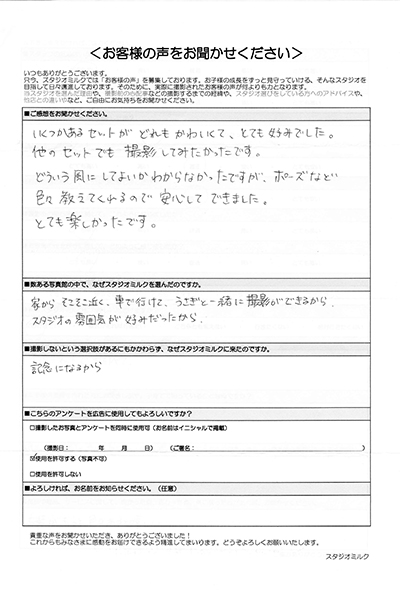 ＜お客様の声をお聞かせください＞
いつもありがとうございます。
只今、スタジオミルクでは「お客様の声」を募集しております。お子様の成長をずっと見守っていける、そんなスタジオを
目指して日々邁進しております。そのために、実際に撮影されたお客様の声が何よりも力となります。
当スタジオを選んだ理由や、撮影前の心配事などの撮影するまでの経緯や、スタジオ選びをしている方へのアドバイスや、
他店との違いやなど、ご自由にお気持ちをお聞かせください。
■ご感想をお聞かせください。
いくつかあるセットが どれも かわいくて、とても好みでした。
他の セットでも 撮影してみたかったです。
どういう風にしてよいかわからなかったですが、ポーズなど
色々 教えてくれるので 安心して できました。
とても楽しかったです。
■数ある写真館の中で、なぜスタジオミルクを選んだのですか。
家から そこそこ近く、車で行けて、うさぎと一緒に撮影ができるから。
スタジオの 雰囲気が 好みだったから.
■撮影しないという選択肢があるにもかかわらず、なぜスタジオミルクに来たのですか。
記念になるから
■こちらのアンケートを広告に使用してもよろしいですか？
□撮影したお写真とアンケートを同時に使用可（お名前はイニシャルで掲載）
（撮影日： 年 月 日） （ご署名： ）
☑使用を許可する（写真不可）
□使用を許可しない
■よろしければ、お名前をお知らせください。（任意）
貴重な声をお聞かせいただき、ありがとうございました！
これからもみなさまに感動をお届けできるよう精進してまいります。どうぞよろしくお願いいたします。
スタジオミルク